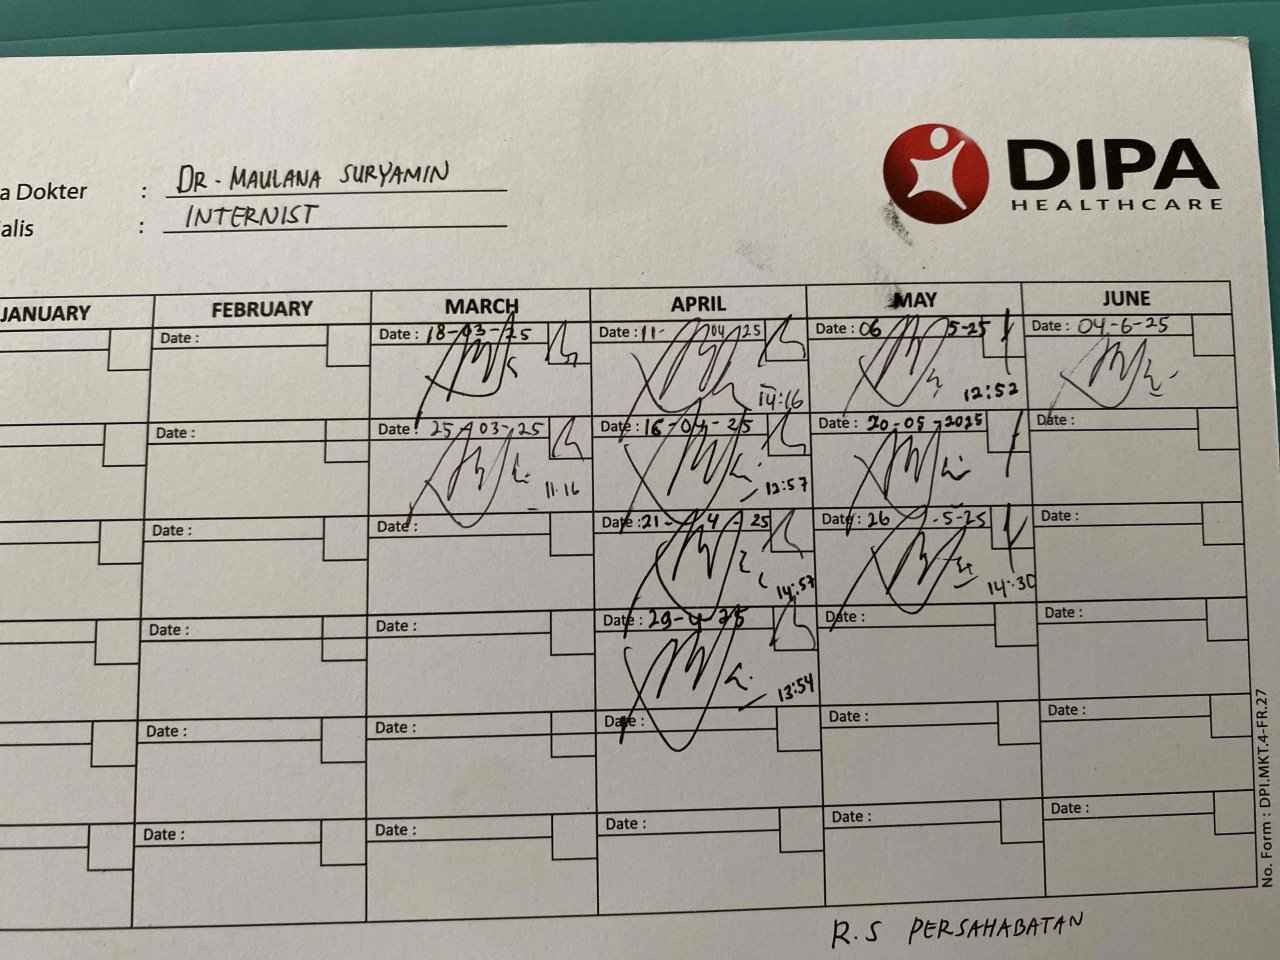 DIPA
HEALTHCARE
a Dokter : DR. MAULANA SURYAMIN
alis : INTERNIST
JANUARY FEBRUARY MARCH APRIL MAY JUNE
Date : Date : 18-03-25 Date : 11-04-25 Date : 06-5-25 Date : 04-6-25
14:16 12:52
Date : Date : 25-03-25 Date : 16-04-25 Date : 20-05-2025 Date :
11.16 12:57
Date : Date : Date : 21-4-25 Date : 26-5-25 Date :
14:57 14:30
Date : Date : Date : 29-4-25 Date : Date :
13:54
Date : Date : Date : Date : Date :
Date : Date : Date : Date : Date :
No. Form : DPI.MKT.4-FR.27
R.S PERSAHABATAN